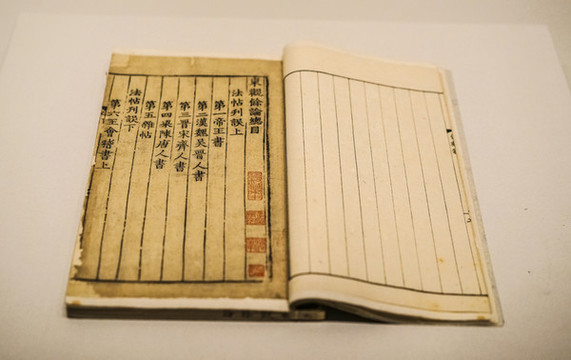 東觀餘論總目
法帖刊誤上
第一帝王書
第二漢魏吳晉人書
第三晉宋齊人書
第四梁陳唐人書
第五雜帖
法帖刊誤下
第六王會稽書上